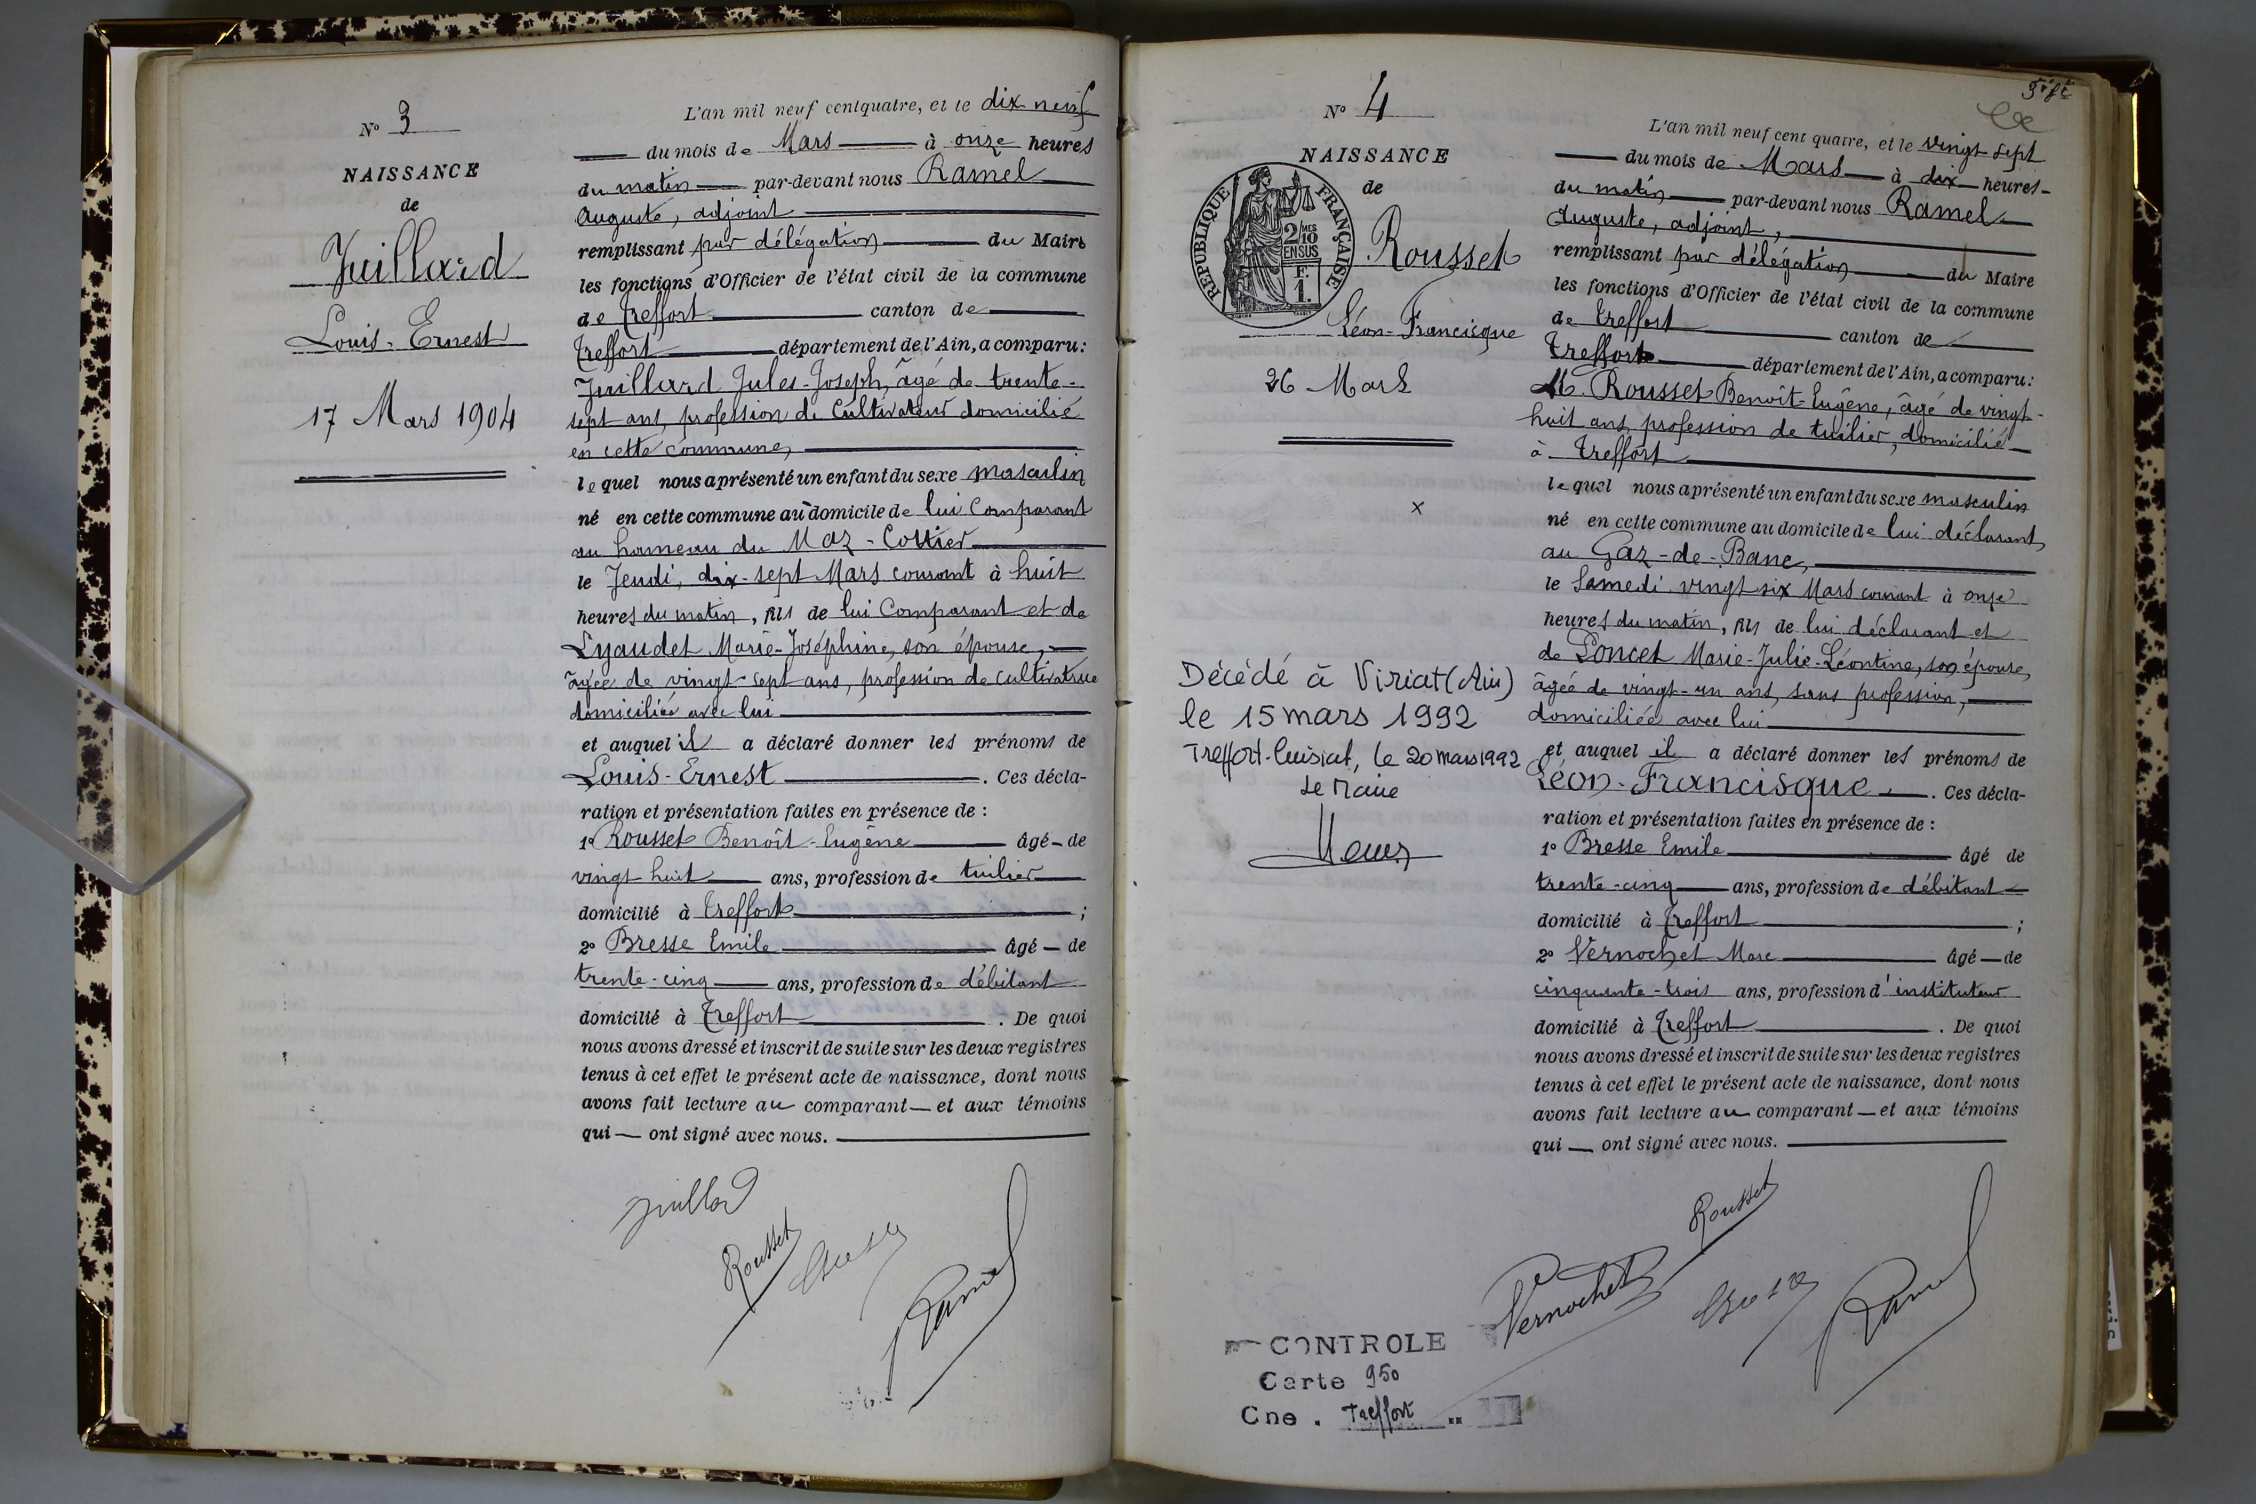 N° 3
NAISSANCE
de
Juillard
Louis-Ernest
17 Mars 1904
L'an mil neuf cent quatre, et le dix neuf
du mois de Mars à onze heures
du matin par-devant nous Ramel
Auguste, adjoint
remplissant par délégation du Maire
les fonctions d'Officier de l'état civil de la commune
de Treffort canton de
Treffort département de l'Ain, a comparu:
Juillard Jules-Joseph, âgé de trente-
sept ans, profession de cultivateur domicilié
en cette commune,
lequel nous a présenté un enfant du sexe masculin
né en cette commune au domicile de lui comparant
au hameau du Maz-Cottier
le Jeudi, dix-sept Mars courant à huit
heures du matin, fils de lui Comparant et de
Lyaudet Marie-Joséphine, son épouse,
âgée de vingt-sept ans, profession de cultivatrice
domiciliée avec lui
et auquel il a déclaré donner les prénoms de
Louis-Ernest. Ces décla-
ration et présentation faites en présence de :
1° Rousset Benoît-Eugène âgé de
vingt huit ans, profession de tuilier
domicilié à Treffort ;
2° Bresse Emile âgé de
trente-cinq ans, profession de débitant
domicilié à Treffort. De quoi
nous avons dressé et inscrit de suite sur les deux registres
tenus à cet effet le présent acte de naissance, dont nous
avons fait lecture au comparant et aux témoins
qui ont signé avec nous.
Juillard
Rousset
Bresse
Ramel
N° 4
NAISSANCE
de
REPUBLIQUE FRANÇAISE
2 MES
10
EN SUS
F.
1.
Rousset
Léon-Francisque
26 Mars
x
Décédé à Viriat (Ain)
le 15 mars 1992
Treffort-Cuisiat, le 20 mars 1992
Le Maire
L'an mil neuf cent quatre, et le vingt sept
du mois de Mars à dix heures
du matin par-devant nous Ramel
Auguste, adjoint,
remplissant par délégation du Maire
les fonctions d'Officier de l'état civil de la commune
de Treffort canton de
Treffort département de l'Ain, a comparu:
M. Rousset Benoît-Eugène, âgé de vingt-
huit ans, profession de tuilier, domicilié
à Treffort
lequel nous a présenté un enfant du sexe masculin
né en cette commune au domicile de lui déclarant
au Gaz-de-Banc,
le Samedi vingt six Mars courant à onze
heures du matin, fils de lui déclarant et
de Poncet Marie-Julie-Léontine, son épouse,
âgée de vingt-un ans, sans profession,
domiciliée avec lui
et auquel il a déclaré donner les prénoms de
Léon-Francisque. Ces décla-
ration et présentation faites en présence de :
1° Bresse Emile âgé de
trente-cinq ans, profession de débitant
domicilié à Treffort ;
2° Vernochet Marc âgé de
cinquante-trois ans, profession d'instituteur
domicilié à Treffort. De quoi
nous avons dressé et inscrit de suite sur les deux registres
tenus à cet effet le présent acte de naissance, dont nous
avons fait lecture au comparant et aux témoins
qui ont signé avec nous.
Rousset
Vernochet
Bresse
Ramel
CONTROLE
Carte 950
Cne. Treffort